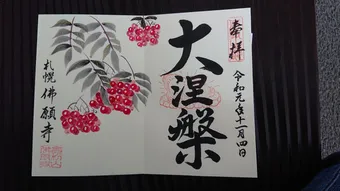 奉拝
令和元年十一月四日
大涅槃
札幌 佛願寺